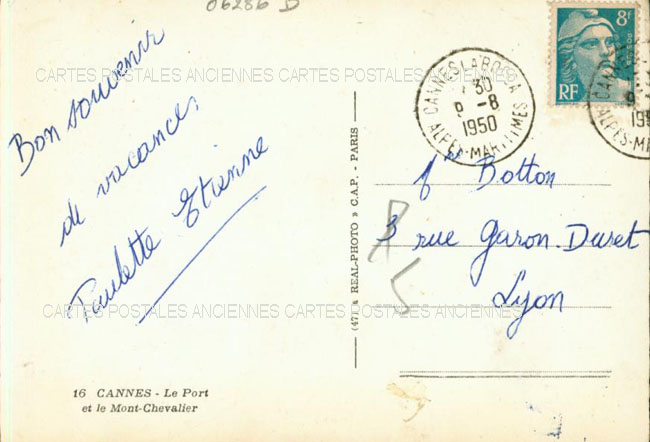 06286 D
Bon souvenir
de vacances
Paulette Etienne
16 CANNES - Le Port
et le Mont-Chevalier
(47) « REAL-PHOTO » C.A.P. - PARIS
8F
RF
CANNES LA BOCCA
30
8 -8
1950
ALPES-MARITIMES
195
Botton
3 rue Garon-Duret
Lyon
5
CARTES POSTALES ANCIENNES CARTES POSTALES ANCIENNES
CARTES POSTALES ANCIENNES CARTES POSTALES ANCIENNES